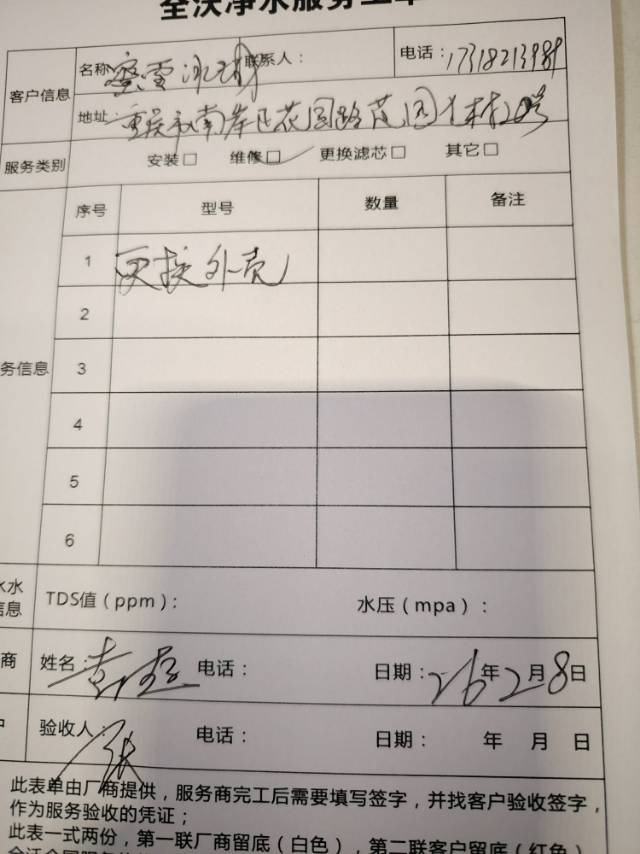 全沃净水服务工单
客户信息
名称 蜜雪冰城 联系人： 电话：17318213989
地址 重庆市南岸区花园路花园六村20号
服务类别 安装□ 维修□ 更换滤芯□ 其它□
序号 型号 数量 备注
1 更换外壳
2
务信息 3
4
5
6
水水
信息 TDS值（ppm）： 水压（mpa）：
商 姓名： 电话： 日期：26年2月8日
户 验收人： 张 电话： 日期： 年 月 日
此表单由厂商提供，服务商完工后需要填写签字，并找客户验收签字，
作为服务验收的凭证；
此表一式两份，第一联厂商留底（白色），第二联客户留底（红色）